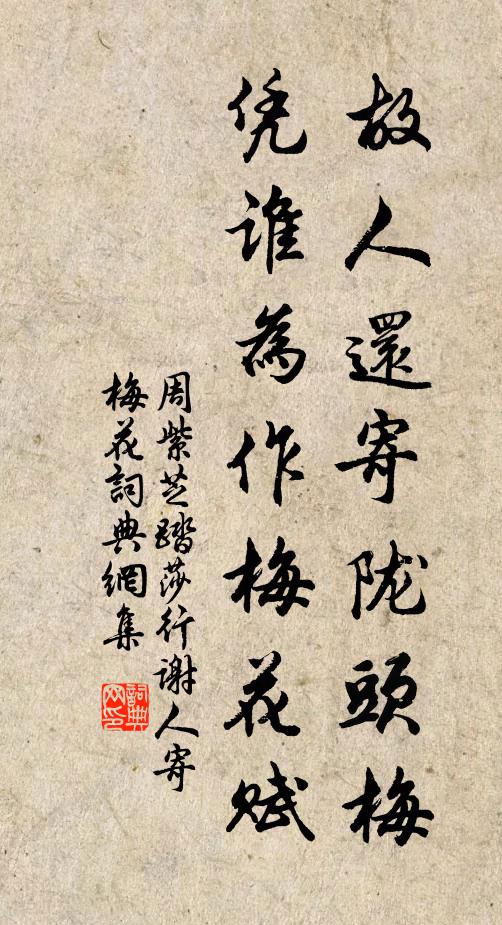 故人還寄陇頭梅
凭谁為作梅花赋
周紫芝踏莎行谢人寄
梅花詞典網集
詞典网印